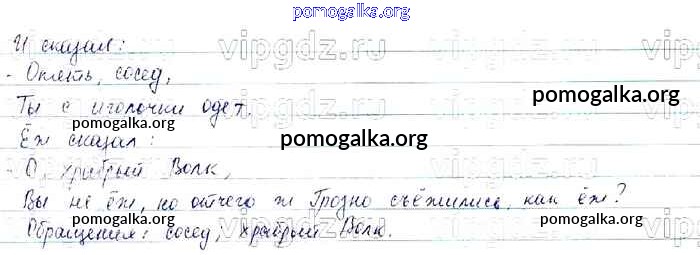 pomogalka.org
И сказал:
- Опять, сосед,
Ты с иголочки одет.
pomogalka.org
pomogalka.org
Ёж сказал:
pomogalka.org
pomogalka.org
- О, храбрый Волк,
Вы не ёж, но отчего ж Грозно съёжились, как ёж?
pomogalka.org
pomogalka.org
pomogalka.org
Обращения: сосед; храбрый Волк.
vipgdz.ru
vipgdz.ru
vipgdz.ru